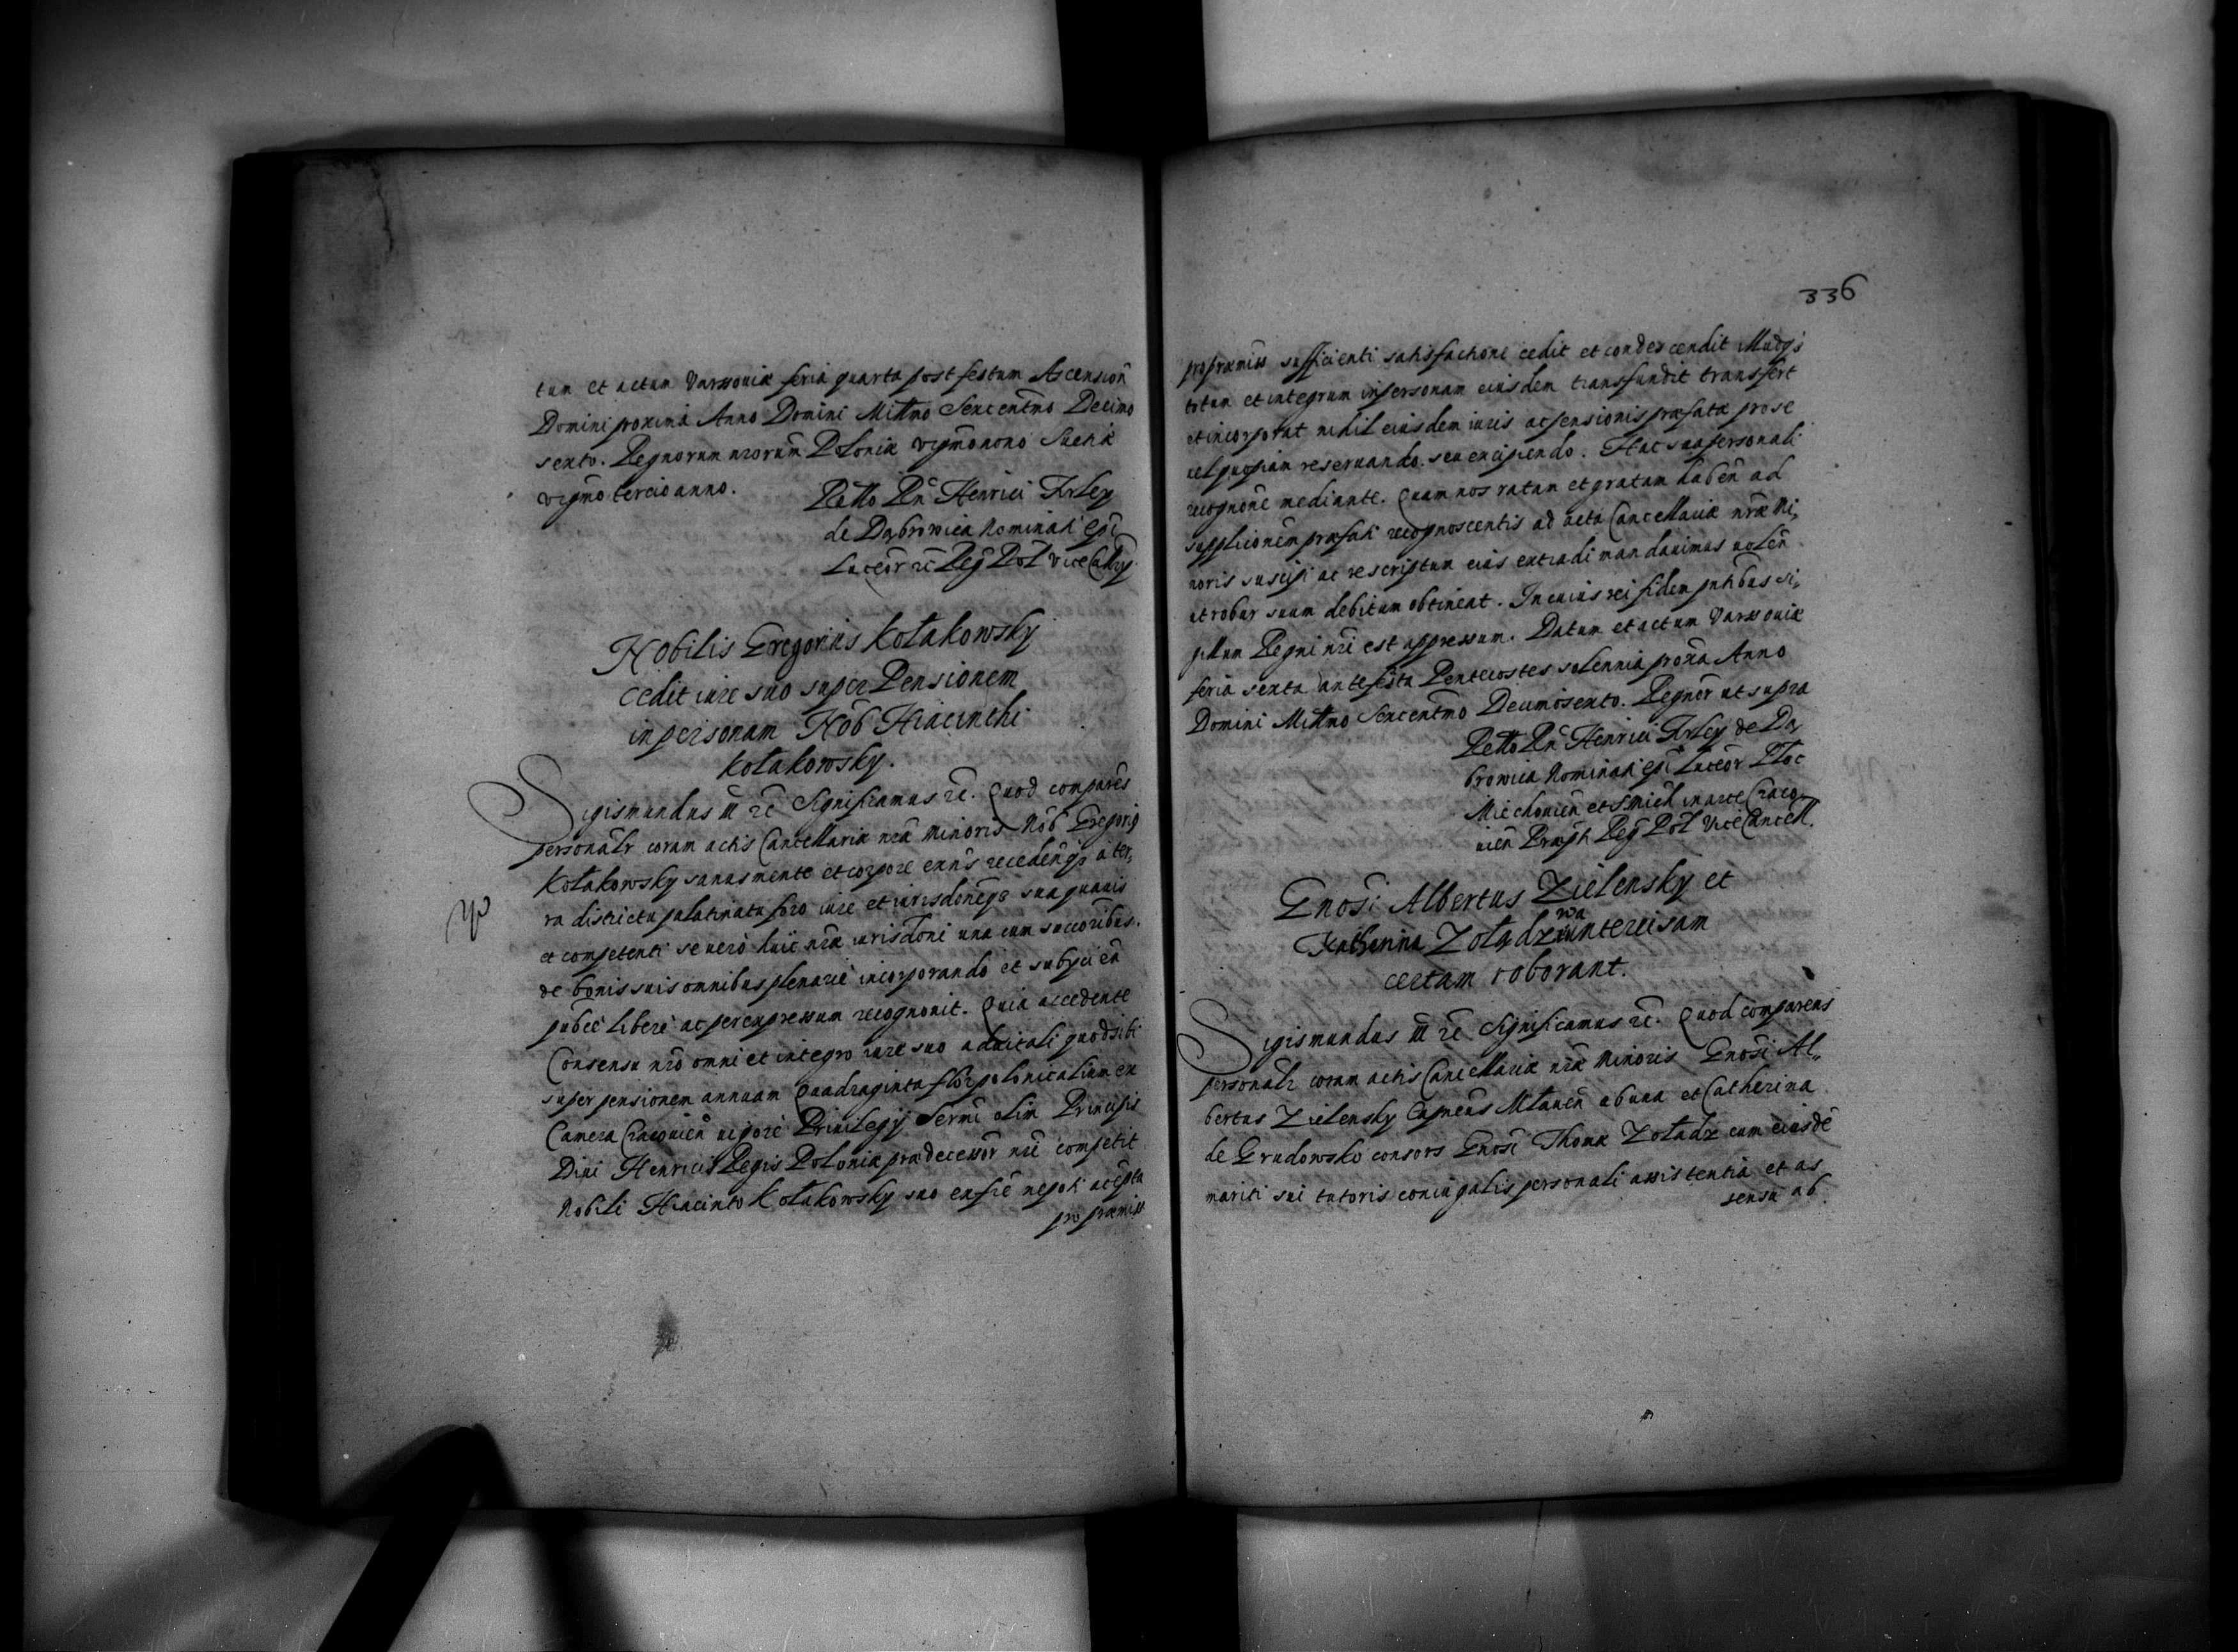 tum et actum Varssoviæ feria quarta post festum Ascension̄
Domini proxima Anno Domini Mill̄mo Sexcentmō Decimo
sexto. Regnorum nrōrum Poloniæ vigmōnono Sueciæ
vigmō tercio anno.
Rellō Rn̄ Henrici Firley
de Dąbrowica Nominati Ep̄i
Luceōr rc̄ Reg Pol Vice Can̄rÿ
Nobilis Gregorius Kołakowsky
cedit iure suo super Pensionem
in personam Nōb Hiacinthi
Kołakowsky.
Sigismundus III rc̄ Significamus rc̄. Quod comparēs
personalr̄ coram actis Cancellariæ nrāe Minoris Nōb Gregoriꝰ
Kołakowsky sanus mente et corpore exns̄ recedensq̄ȝ a ter„
ra districtu palatinatu foro iure et iurisdōneqȝ sua quavis
et competenti se vero huic nrāe iurisdōni una cum succōribus.
de bonis suis omnibus plenarie incorporando et subycien̄
publ̄ce libere ac per expressum recognovit. Quia accedente
Consensu nrō omni et integro iure suo advitali quod sibi
super pensionem annuam Quadraginta flōr polonicalium ex
Camera Cracovien̄ vigore Privilegÿ Sermī olim Principis
Divi Henrici Regis Poloniæ prædecessōr nrī competit
Nobili Hiacinto Kołakowsky suo ex frē nepoti accepta
pro præmiss
336
pro præmiss̄ sufficienti satisfactione cedit et condescendit illudqȝ
totum et integrum in personam eiusdem transfundit transfert
et incorporat nihil eiusdem iuris ac pensionis præfatæ pro se
vel quopiam reservando. seu excipiendo. Hac sua personali
recognōne mediante. Quam nos ratam et gratam haben̄ ad
supplicōnem præfati recognoscentis ad acta Cancellariæ nrāe Mi„
noris suscipi ac rescriptum eius extradi mandavimus volen̄
ut robur suum debitum obtineat. In cuius rei fidem pnt̄ibus si„
gillum Regni nrī est appressum. Datum et actum Varssoviæ
feria sexta ante festa Pentecostes solennia proxā Anno
Domini Mill̄mo Sexcentmō Decimosexto. Regnōr ut supra
Rellō Rn̄ Henrici Firley de Dą„
browica Nominati Ep̄i Luceōr Ploc
Miechovien̄ et S. Mich in arce Craco„
vien̄ Præpti Reg Pol Vice Cancell.
Gnosī Albertus Zielensky et
Katharina Zołądzowa intercisam
certam roborant.
Sigismundus III rc̄ Significamus rc̄. Quod comparens
personalr̄ coram actis Cancellariæ nrāe Minoris Gnosī Al„
bertus Zielensky Capneūs Mlaven̄ ab una et Catherina
de Grudowsko consors Gnosī Thomæ Zołądz cum eiusdē
mariti sui tutoris coniugalis personali assistentia et as
sensu ab